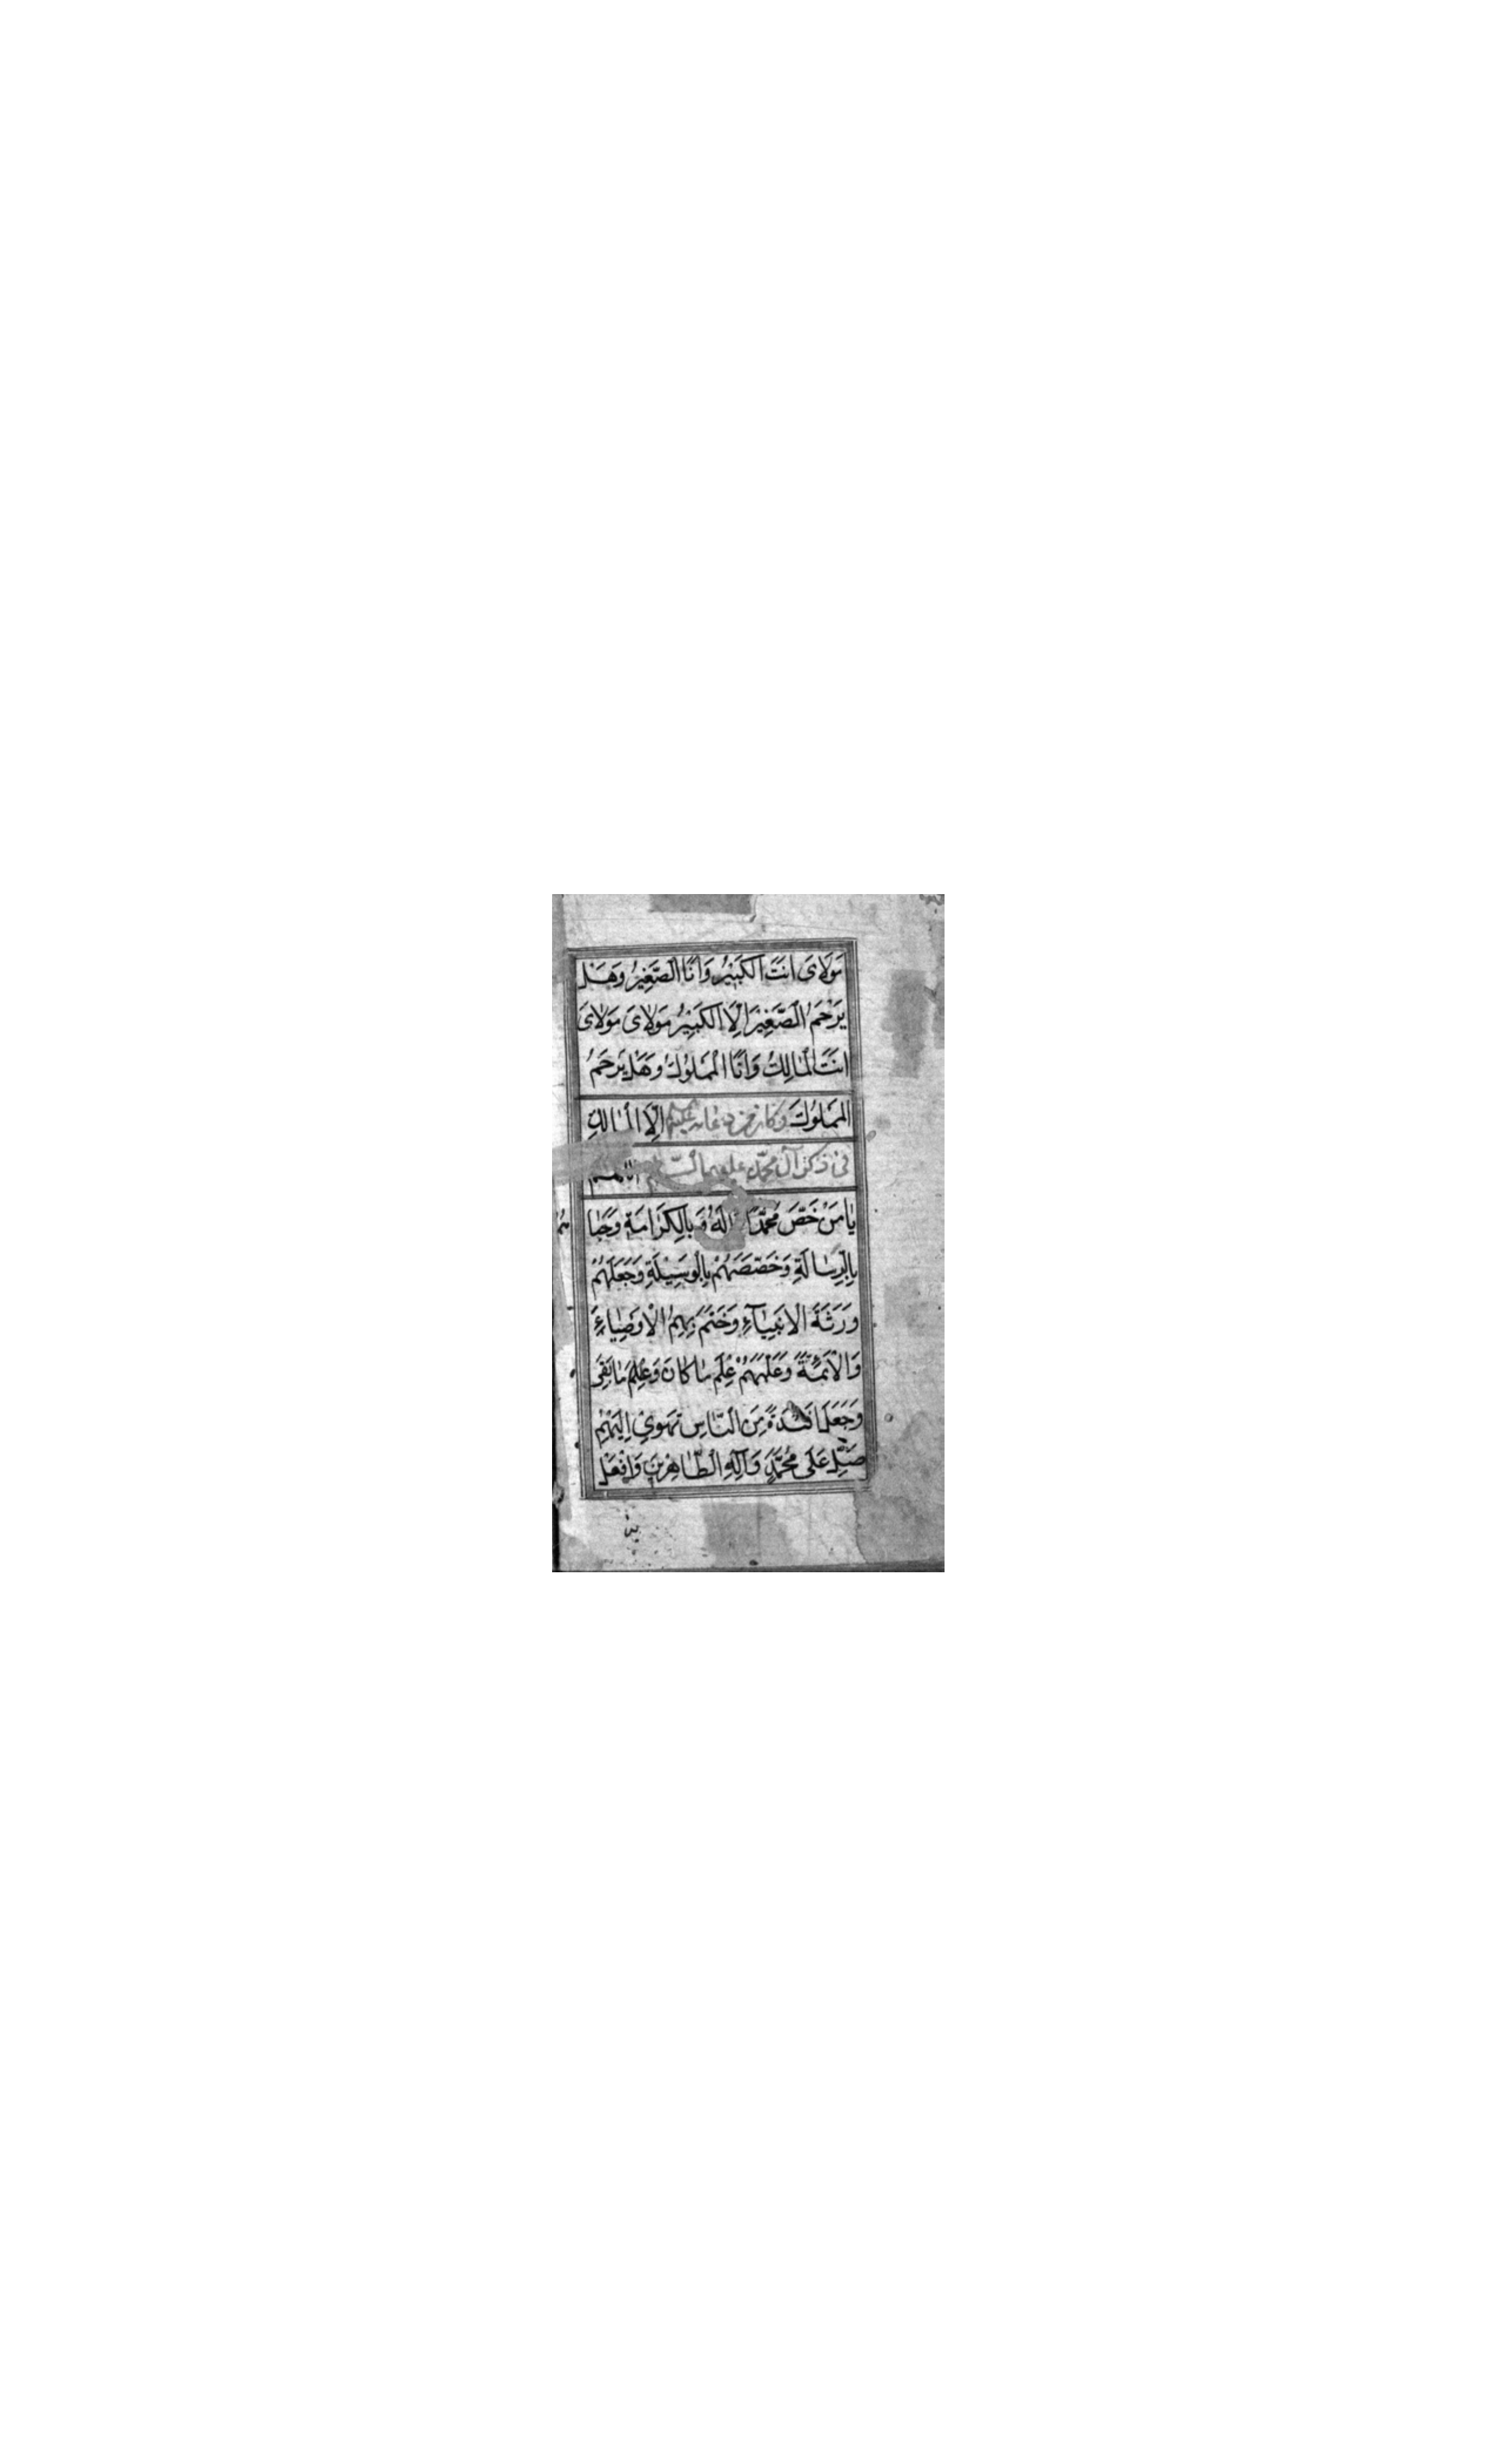 مَولَایَ اَنتَ الکَبیرُ وَاَنَا الصَّغِیرُ وَهَل
یَرْحَمُ الصَّغِیرَ اِلَّا الکَبِیرُ مَولَایَ مَولَایَ
اَنتَ المَالِكُ وَاَنَا المَملُوكُ وَهَل یَرحَمُ
المَملُوكَ اِلَّا المَالِكُ وکان من دعائه علیه
فی ذکر آل محمّد علیهم السّلام اللّهم
یَا مَنْ خَصَّ مُحَمَّدًا وَآلَهُ بِالکَرَامَةِ وَحَبَا
هُم
بِالرِّسَالَةِ وَخَصَّصَهُمْ بِالوَسِیلَةِ وَجَعَلَهُمْ
وَرَثَةَ الاَنبِیَآءِ وَخَتَمَ بِهِمُ الْاَوصِیَاءَ
وَالْاَئِمَّةَ وَعَلَّمَهُمْ عِلْمَ مَا کَانَ وَعِلْمَ مَا بَقِیَ
وَجَعَلَ اَفْئِدَةً مِنَ النَّاسِ تَهوِی اِلَیْهِمْ
صَلِّ عَلَی مُحَمَّدٍ وَآلِهِ الطَّاهِرِینَ وَافْعَلْ